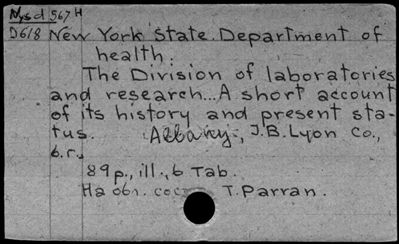 Nysd 567H
D618 New York State. Department of
health.
The Division of laboratories
and research... A short account
of its history and present sta-
tus. Albany, J.B. Lyon Co.,
б.г.,
89p., ill., 6 Tab.
На обл. сост. T. Parran.